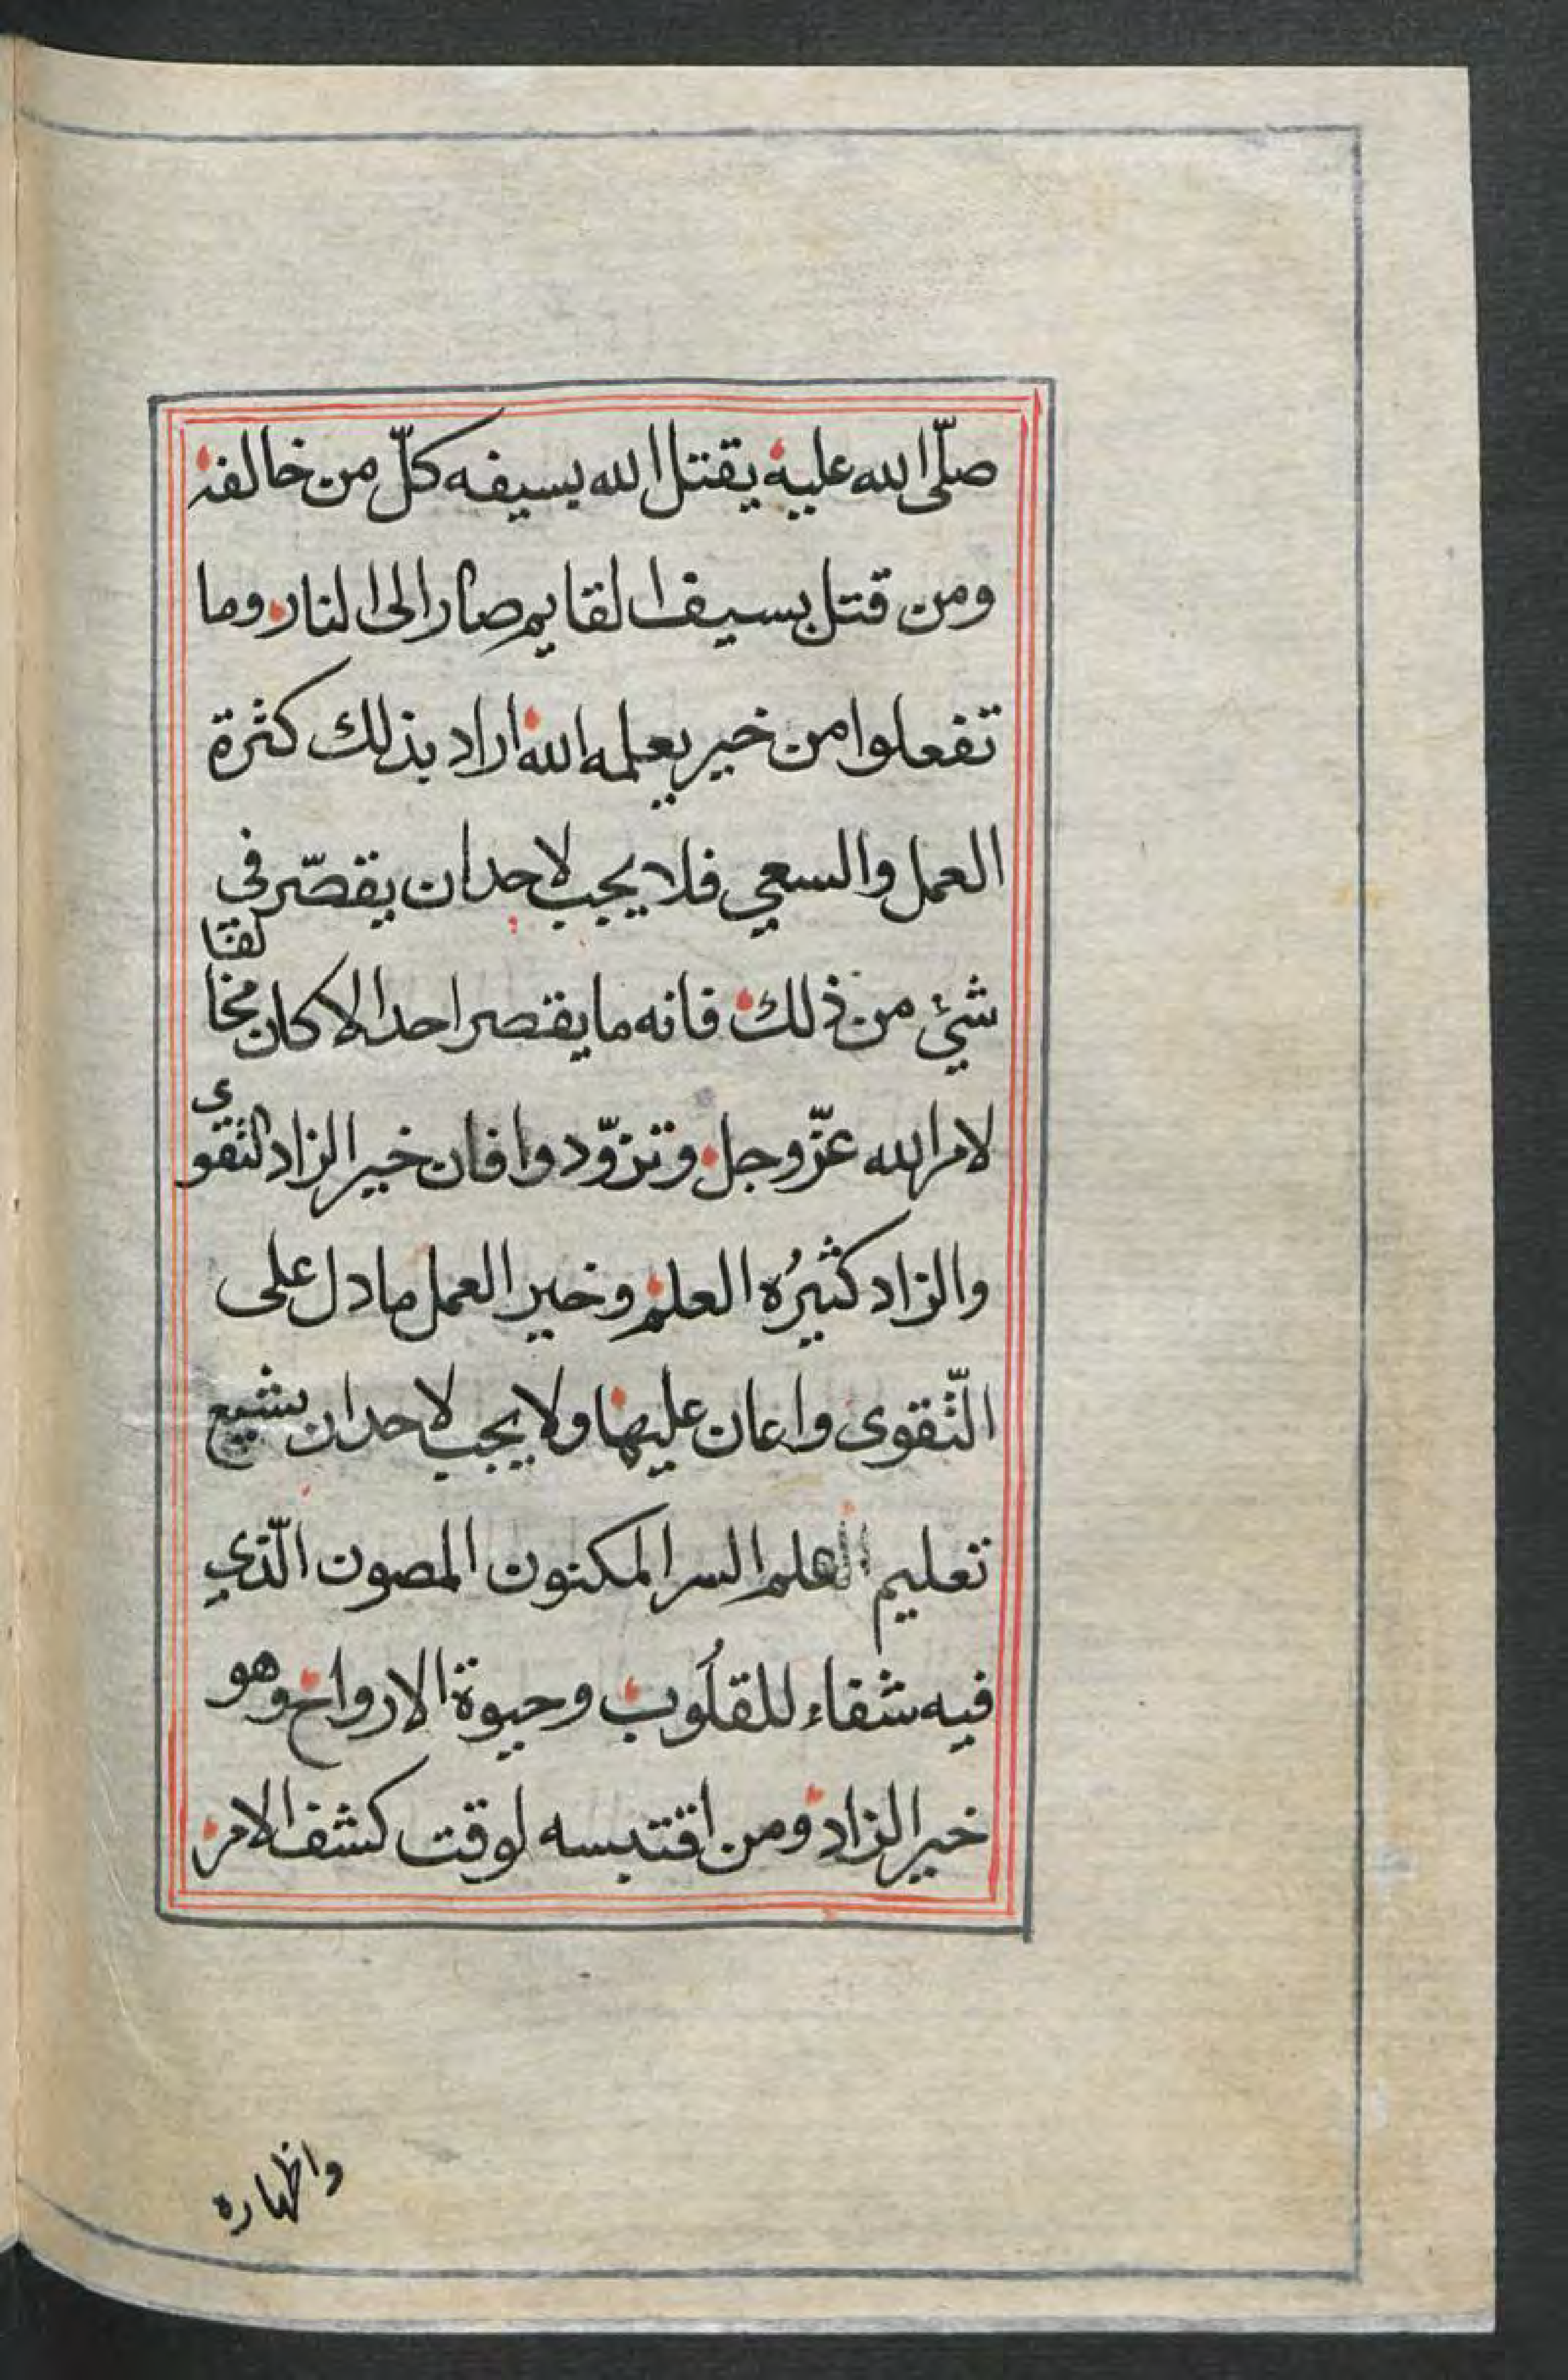 صلّى الله عليه يقتل الله بسيفه كلّ من خالفه
ومن قتل بسيف القايم صار الى النار وما
تفعلوا من خير يعلمه الله اراد بذلك كثرة
العمل والسعي فلا يجب لاحد ان يقصّر في
شئ من ذلك فانه ما يقصر احد الا كان مخالفا
لامر الله عزّ وجل وتزوّدوا فان خير الزاد التقوي
والزاد كثيرُه العلم وخير العمل ما دل على
التّقوى واعان عليها ولا يجب لاحد ان يشيع
تعليم العلم السر المكنون المصون الّذي
فيه شفاء للقلُوب وحيوة الارواح وهو
خير الزاد ومن اقتبسه لوقت كشف الامر
واظهاره